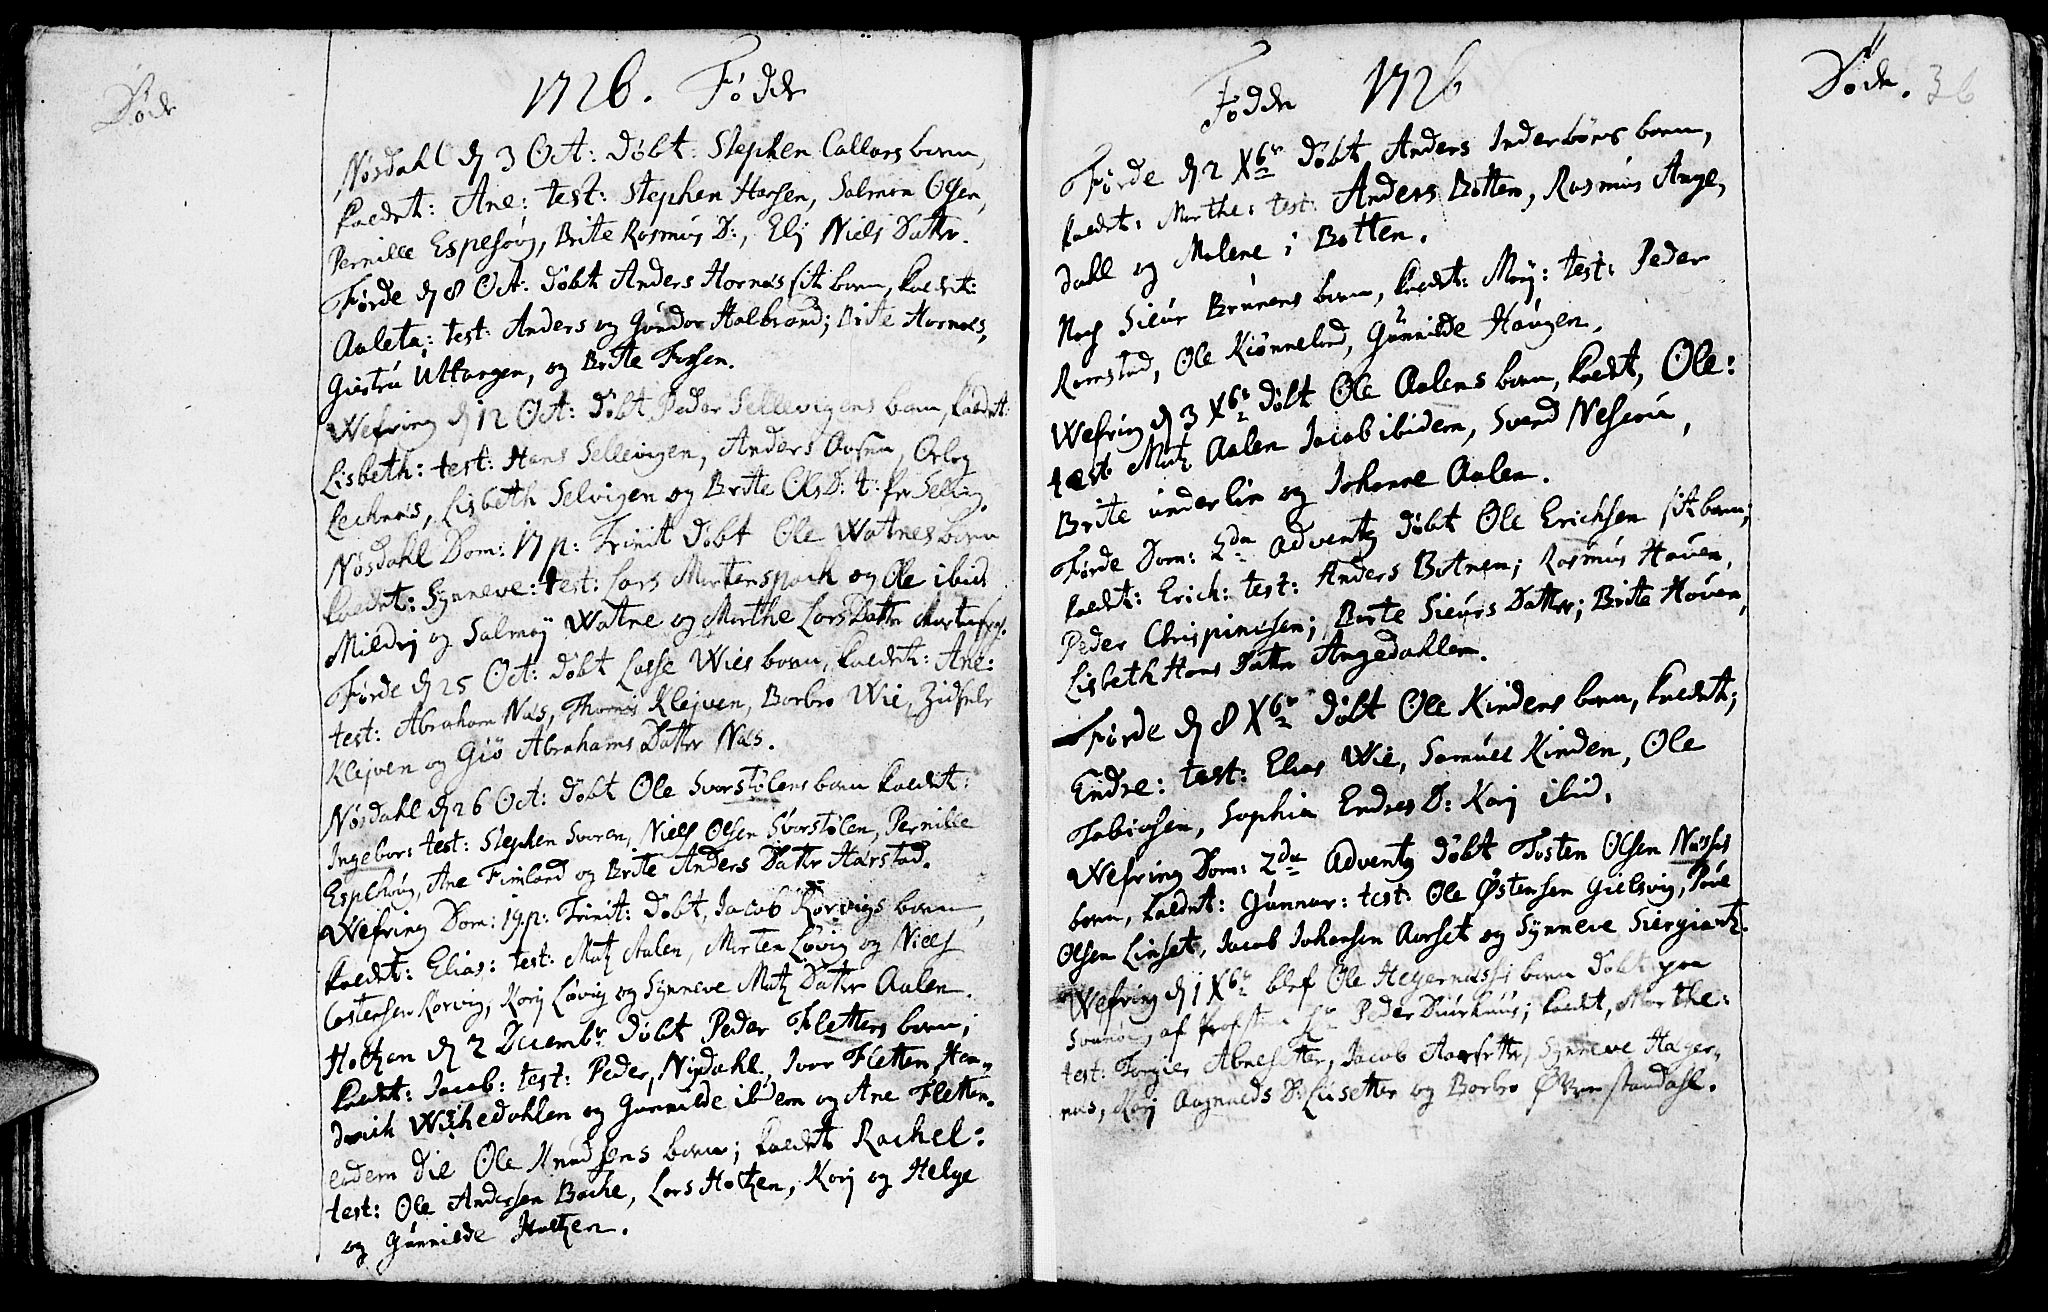 Døde
1726. Fødde
Nøsdahl d 3 Oct: døbt: Stephen Callars barn,
kaldet: Ane: test: Stephen Hansen, Salmon Olsen,
Pernille Espesøug, Brite Rasmus D:, Elj Niels Datter.
Førde d 8 Oct: døbt Anders Hornæs sit barn, kaldet:
Aaleta: test: Anders og Gundor Halbrand; Brite Hornæs,
Giertru Uttangen, og Brite Fossen.
Wefring d 12 Oct: døbt Peder Sellevigens barn, kaldet:
Lisbeth: test: Hans Sellevigen, Anders Aasen,
Lechnæs, Lisbeth Selvigen og Brite Ols D: t: fr Selvig.
Nøsdahl Dom: 17 p: Trinit døbt Ole Watnes barn
kaldet: Synneve: test: Lars Mortenspach og Ole ibid
Mildrij og Salmøj Watne og Marthe Lars Datter
Førde d 25 Oct: døbt Lasse Wies barn, kaldet: Ane:
test: Abraham Næs, Thomis Klejven, Barbro Wie, Zidsele
Klejven og Giø Abrahams Datter Næs.
Nøsdahl d 26 Oct: døbt Ole Svorstølens barn kaldet:
Ingebor: test: Stephen Svoren, Niels Olsen Svorstølen, Pernille
Espehøug, Ane Fimland og Brite Anders Datter Harstad.
Wefring Dom: 19 p: Trinit: døbt, Jacob Korvigs barn,
kaldet: Elias: test: Matz Aalen, Morten Løvig og Niels
Costensen Korvig, Karj Løvig og Synneve Matz Datter Aalen.
Holtzen d 2 Decembr døbt Peder Fletters barn;
kaldet: Jacob: test: Peder, Nysdahl, Iver Fletten, Hen-
drich Wiehedahlen og Gunnilde ibidem og Ane Fletten.
eodem die Ole Knudsens barn; kaldet Rachel:
test: Ole Andersen Bache, Lars Holtzen, Karj og Helge
og Gunnilde Holtzen.
Fødde 1726
Døde. 36
Førde d 2 Xbr døbt Anders Inderbøens barn,
kaldet: Marthe: test: Anders Botten, Rasmus Ange,
dahl og Malene i Botten.
Noch Siur Brunens barn, kaldet: Marj: test: Peder
Ramstad, Ole Kiønnelid, Gunnilde Haugen.
Wefring d 3 Xbr døbt Ole Aalens barn, kaldt, Ole:
test. Matz Aalen Jacob ibidem, Svend Neserù,
Brite underlin og Johanne Aalen.
Førde Dom: 2da Adventq døbt Ole Erichsen sit barn;
kaldet: Erich: test: Anders Botnen; Rasmus Hauen,
Peder Chrispinusen; Barte Siurs Datter; Brite Høuen,
Lisbeth Hans Datter Angedahlen.
Førde d 8 Xbr døbt Ole Kindens barn, kaldet;
Endre: test: Elias Wie, Samuel Kinden, Ole
Tobiasen, Sophia Endres D: Karj ibid.
Wefring Dom: 2da Adventq døbt Tosten Olsen Næsses
barn, kaldet: Gunnar: test: Ole Østensen Gielsvig, Poul
Olsen Linset, Jacob Johansen Aarset og Synneve Siergiant.
Wefring d 1 Xbr blef Ole Hegernæssis barn døbt paa
Svanøe, af Profsten Hr Peder Diurhuus; kaldt, Marthe:
test: Torgier Abnesetter, Jacob Aarsetter, Synneve Heger,
næs, Karj Aagmunds D: Lisetter og Barbro Øvrestandahl.